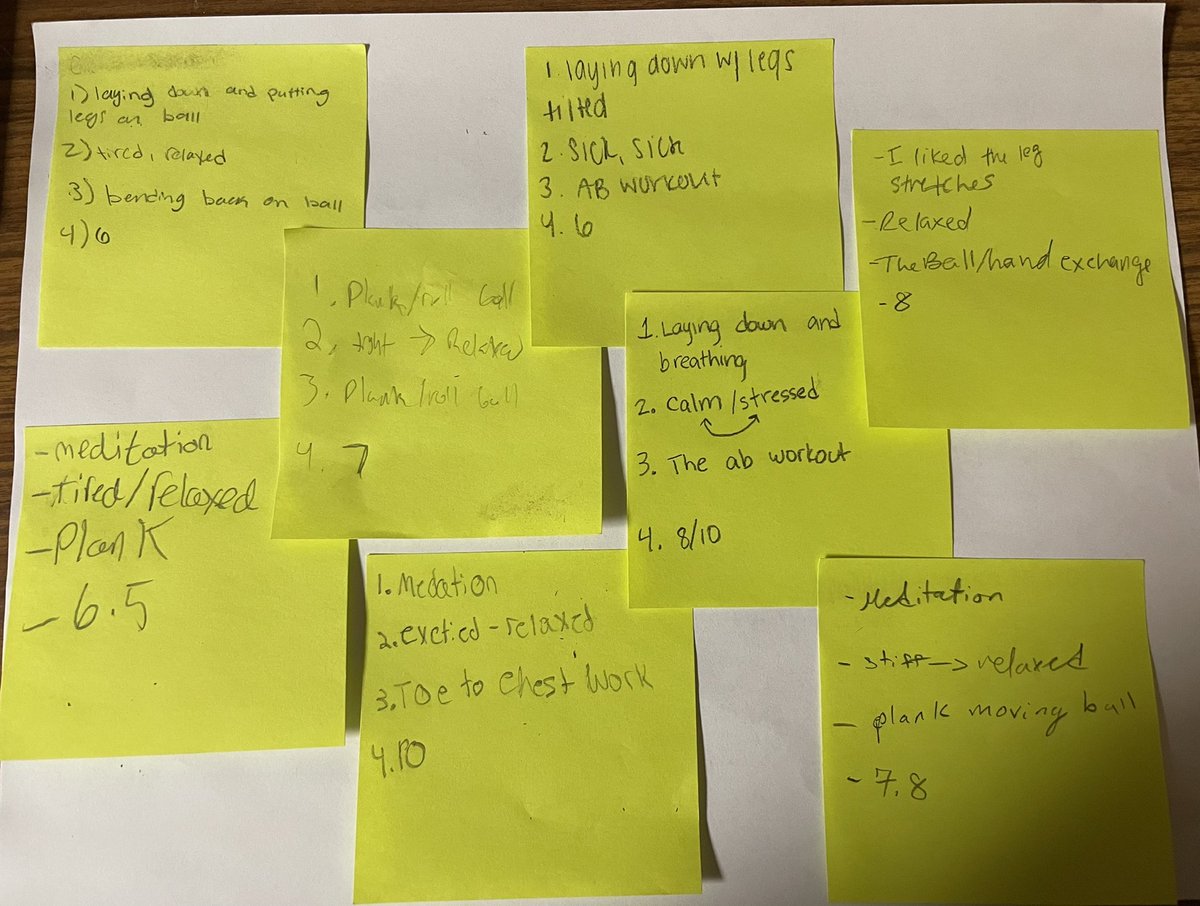 1) laying down and putting
legs on ball
2) tired, relaxed
3) bending back on ball
4) 6
1. laying down w/ legs
tilted
2. sick, sick
3. AB workout
4. 6
- I liked the leg
stretches
- Relaxed
- The Ball/hand exchange
- 8
1. Plank/roll ball
2. tight → Relaxed
3. Plank/roll ball
4. 7
1. Laying down and
breathing
2. calm/stressed
3. The ab workout
4. 8/10
- meditation
- tired/relaxed
- Plank
- 6.5
1. Medation
2. exctied - relaxed
3. Toe to chest work
4. 10
- Meditation
- stiff → relaxed
- plank moving ball
- 7.8